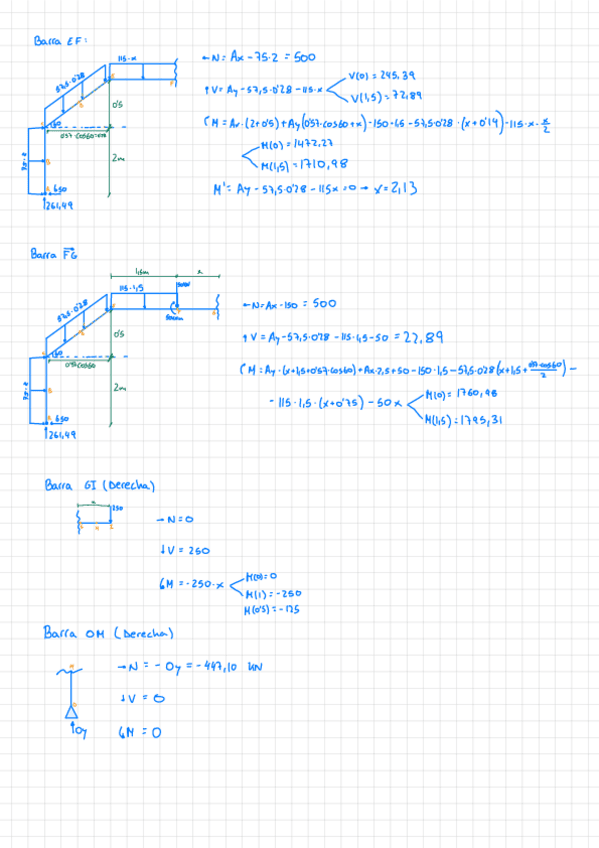 Barra EF:
115·x
57,5·0'28
150
0'5
0'57·cos60=0'28
75·2
2m
650
261,49
←N = Ax - 75·2 = 500
↑V = Ay - 57,5·0'28 - 115·x
V(0) = 245,39
V(1,5) = 72,89
M = Ax·(2+0'5) + Ay(0'57·cos60+x) - 150·1,5 - 57,5·0'28·(x+0'14) - 115·x·x/2
M(0) = 1472,27
M(1,5) = 1710,98
M' = Ay - 57,5·0'28 - 115x = 0 → x = 2,13
Barra FG
1,5m
x
115·1,5
50kN
57,5·0'28
150
0'5
0'57·cos60
75·2
2m
650
261,49
←N = Ax - 150 = 500
↑V = Ay - 57,5·0'28 - 115·1,5 - 50 = 22,89
M = Ay·(x+1,5+0'57·cos60) + Ax·2,5 + 50 - 150·1,5 - 57,5·0'28(x+1,5+0'57·cos60/2) -
- 115·1,5·(x+0'75) - 50x
M(0) = 1760,98
M(1,5) = 1795,31
Barra GI (Derecha)
x
250
→N = 0
↓V = 250
M = -250·x
M(0) = 0
M(1) = -250
M(0'5) = -125
Barra OM (Derecha)
→N = -Oy = -447,10 kN
↓V = 0
M = 0
↑Oy